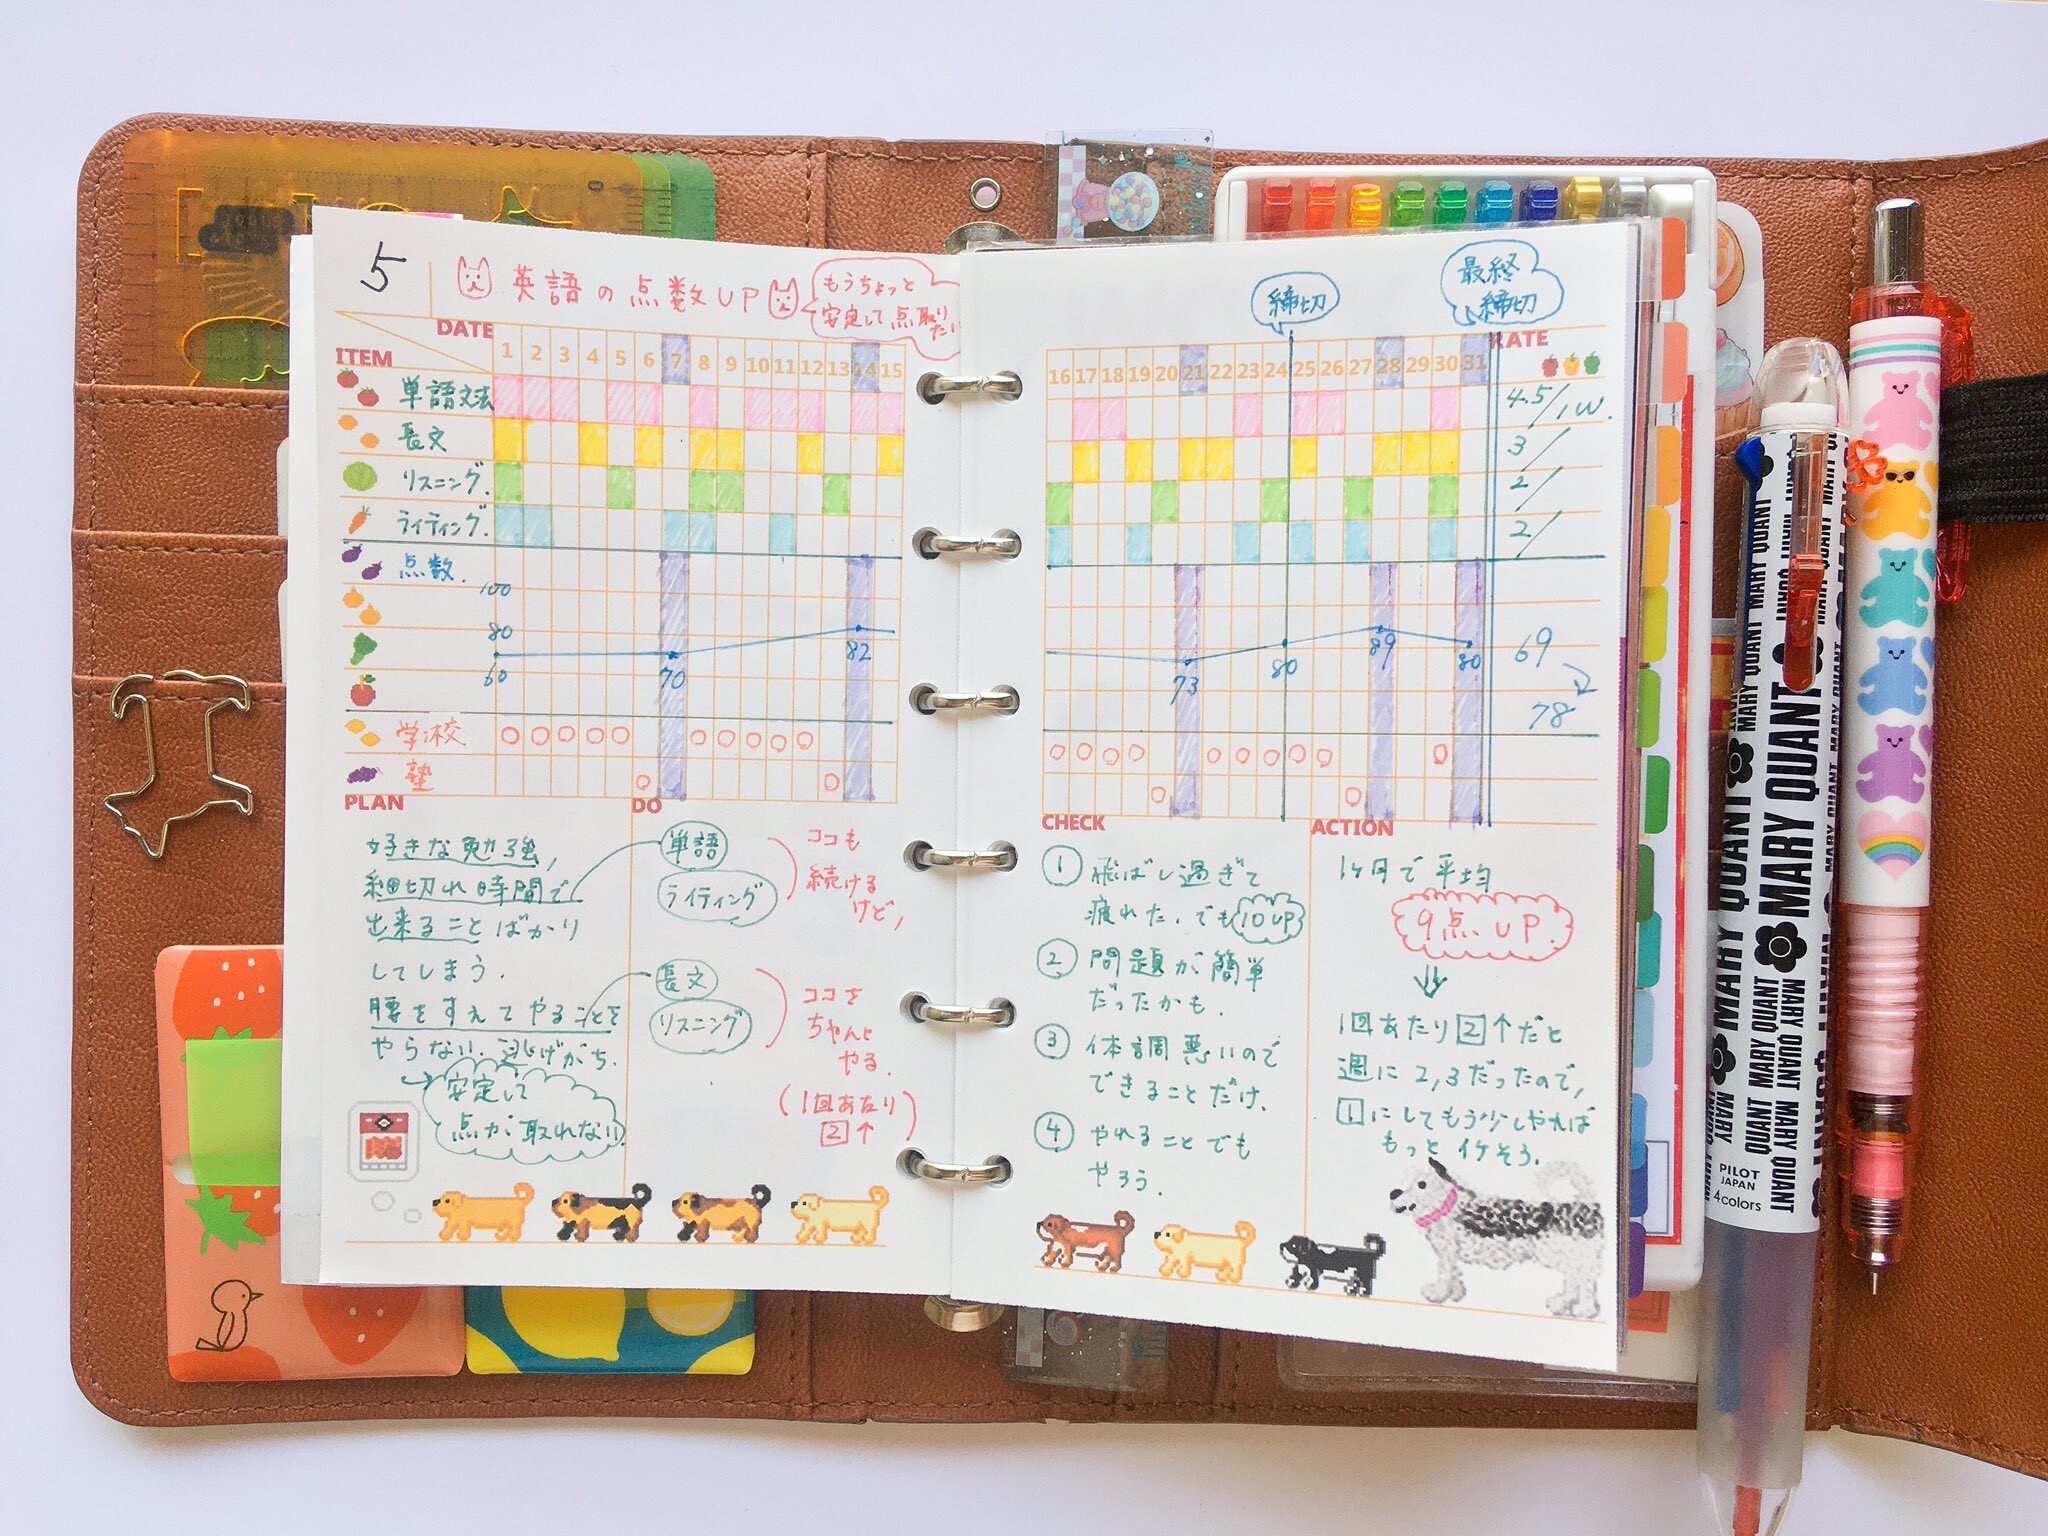 5
英語の点数UP
もうちょっと
安定して点取り
たい
DATE
ITEM
1 2 3 4 5 6 7 8 9 10 11 12 13 14 15
単語文法
長文
リスニング.
ライティング.
点数.
100
80
60
70
82
学校
塾
PLAN
好きな勉強,
細切れ時間で
出来ることばかり
してしまう.
腰をすえてやることを
やらない.逃げがち.
安定して
点が取れない
DO
単語
ライティング
ココも
続ける
けど,
長文
リスニング
ココを
ちゃんと
やる.
(1回あたり
2↑)
締切
最終
締切
RATE
16 17 18 19 20 21 22 23 24 25 26 27 28 29 30 31
4.5/1W.
3/
2/
2/
73
80
89
80
69
78
CHECK
① 飛ばし過ぎて
疲れた.でも10UP
② 問題が簡単
だったかも.
③ 体調悪いので
できることだけ.
④ やれることでも
やろう.
ACTION
1ヶ月で平均
9点UP.
1回あたり2↑だと
週に2,3だったので,
1にしてもう少しやれば
もっとイケそう.
MARY QUANT
PILOT
JAPAN
4colors